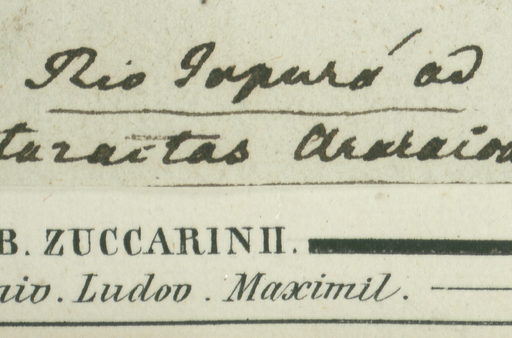 Rio Japurá ad
taractas Araracoa
B. ZUCCARINII.
niv. Ludov. Maximil.